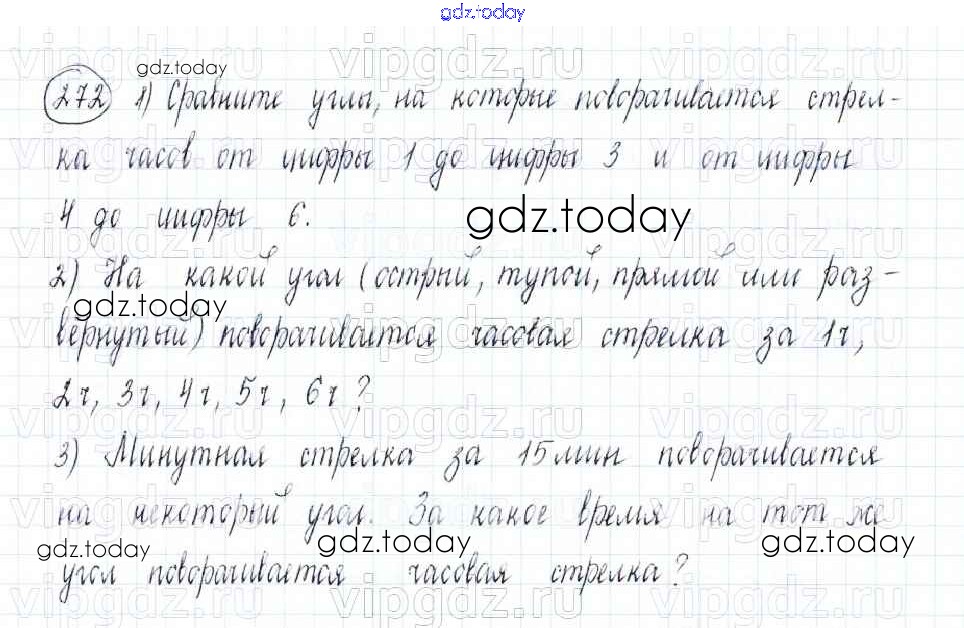 gdz.today
gdz.today
272 1) Сравните углы, на которые поворачивается стрел-
ка часов от цифры 1 до цифры 3 и от цифры
4 до цифры 6.
gdz.today
2) На какой угол (острый, тупой, прямой или раз-
gdz.today
вернутый) поворачивается часовая стрелка за 1ч,
2ч, 3ч, 4ч, 5ч, 6ч?
3) Минутная стрелка за 15 мин поворачивается
на некоторый угол. За какое время на тот же
gdz.today gdz.today gdz.today
угол поворачивается часовая стрелка?
vipgdz.ru vipgdz.ru vipgdz.ru